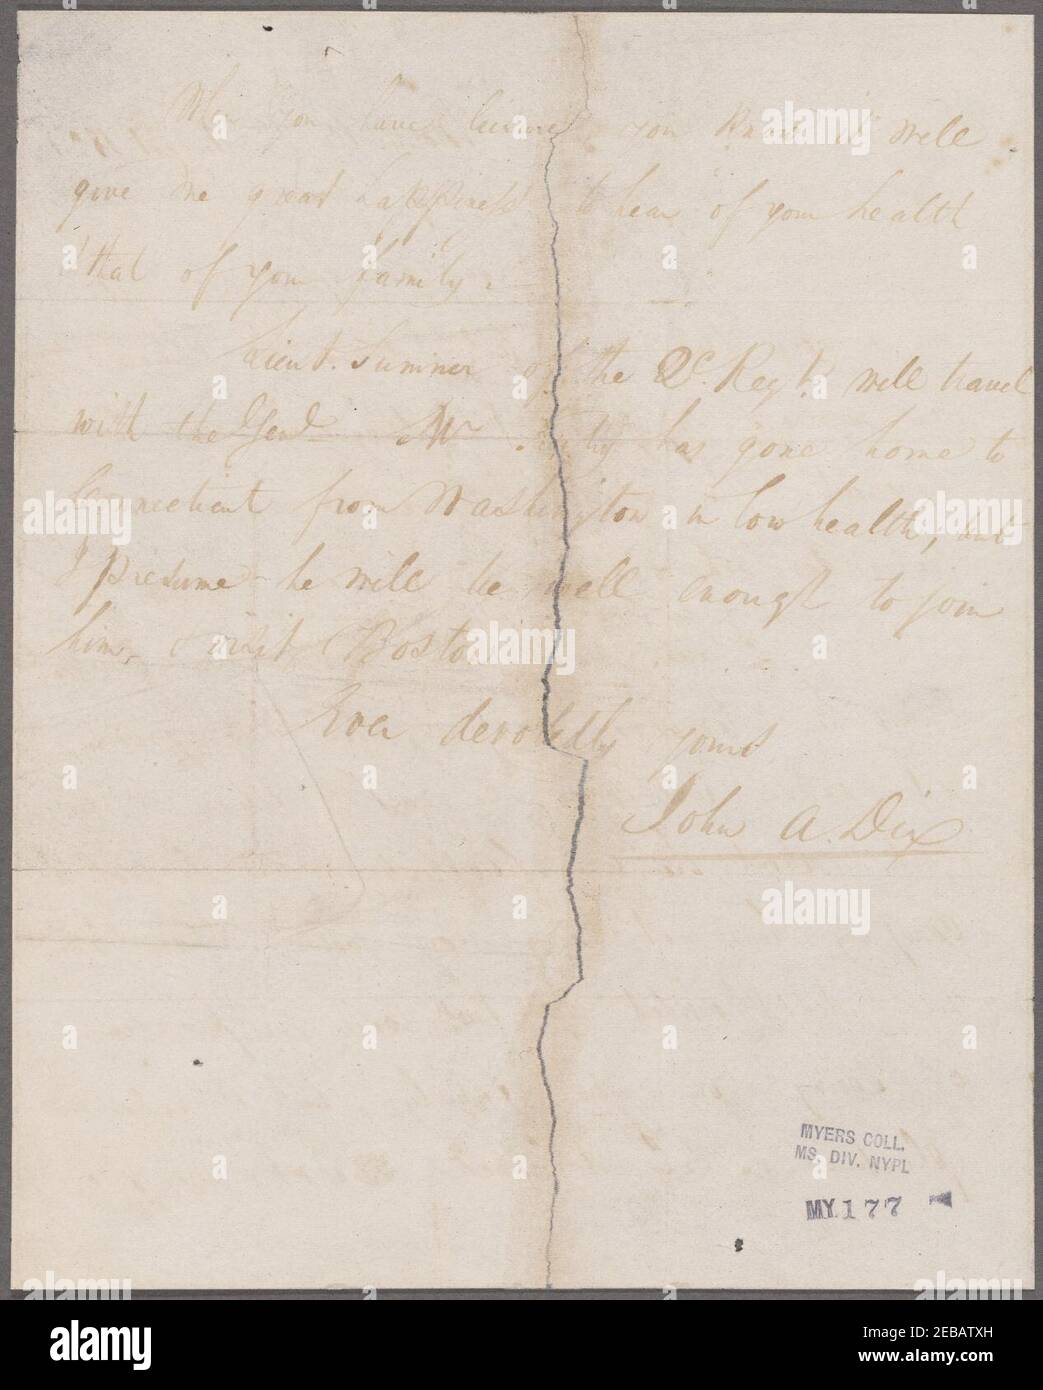 When you have leisure, you know it will
give me great happiness to hear of your health
that of your family.
Lieut. Sumner of the 2d. Regt. will travel
with the Genl. Mr has gone home to
Connecticut from Washington in low health, but
I presume he will be well enough to join
him, & visit Boston
Ever devotedly yours
John A. Dix
MYERS COLL.
MS. DIV. NYPL
MY 177
alamy
Image ID: 2EBATXH
www.alamy.com